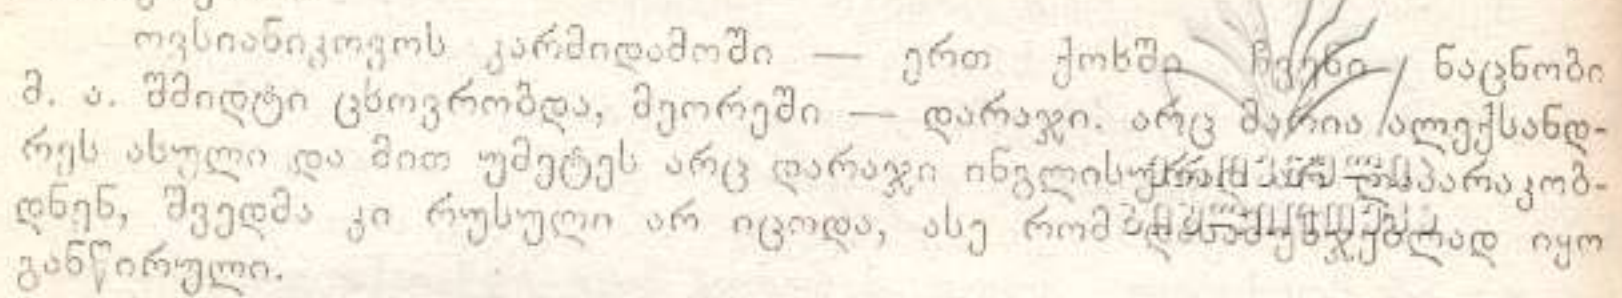 ოვსიანიკოვოს კარმიდამოში — ერთ ქოხში ჩვენი ნაცნობი
მ. ა. შმიდტი ცხოვრობდა, მეორეში — დარაჯი. არც მარია ალექსანდ-
რეს ასული და მით უმეტეს არც დარაჯი ინგლისურად არ ლაპარაკობ-
დნენ, შვედმა კი რუსული არ იცოდა, ასე რომ იყო
განწირული.